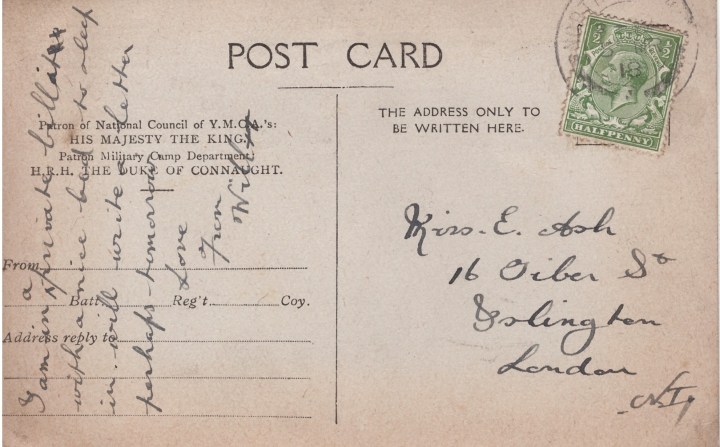 POST CARD
Patron of National Council of Y.M.C.A.'s:
HIS MAJESTY THE KING.
Patron Military Camp Department:
H.R.H. THE DUKE OF CONNAUGHT.
From
Batt. Reg't. Coy.
Address reply to
I am in a private billet
with a nice bed to sleep
in. will write a letter
perhaps tomorrow
Love
From
THE ADDRESS ONLY TO
BE WRITTEN HERE.
½ ½
HALFPENNY
18
Mrs. E. Ash
16 St
Islington
London
N.1